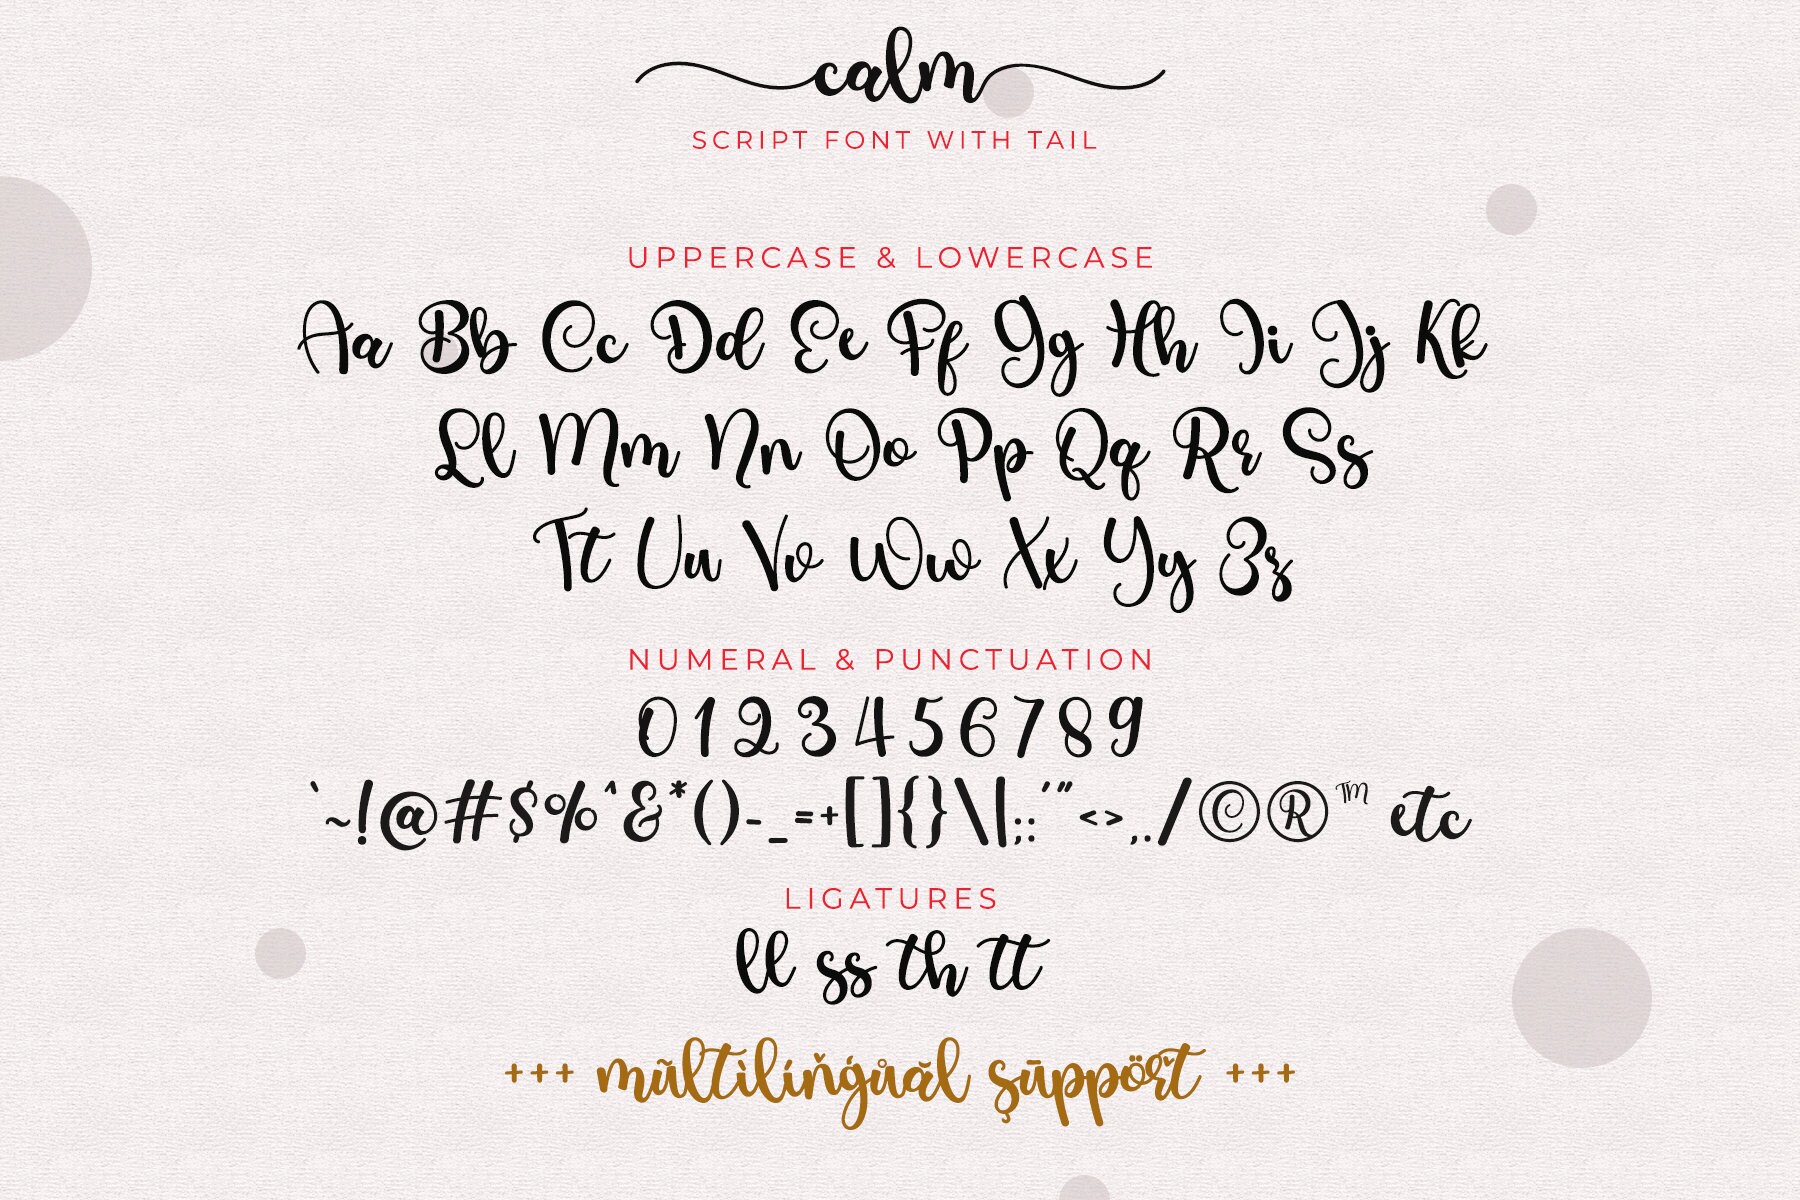 calm
SCRIPT FONT WITH TAIL
UPPERCASE & LOWERCASE
Aa Bb Cc Dd Ee Ff Gg Hh Ii Jj Kk
Ll Mm Nn Oo Pp Qq Rr Ss
Tt Uu Vv Ww Xx Yy Zz
NUMERAL & PUNCTUATION
0 1 2 3 4 5 6 7 8 9
`~!@#$%^&*()-_=+[]{}\|;:'"<>,./©®™ etc
LIGATURES
ll ss th tt
+++ mũltìlíňģůăl şūppöřt +++